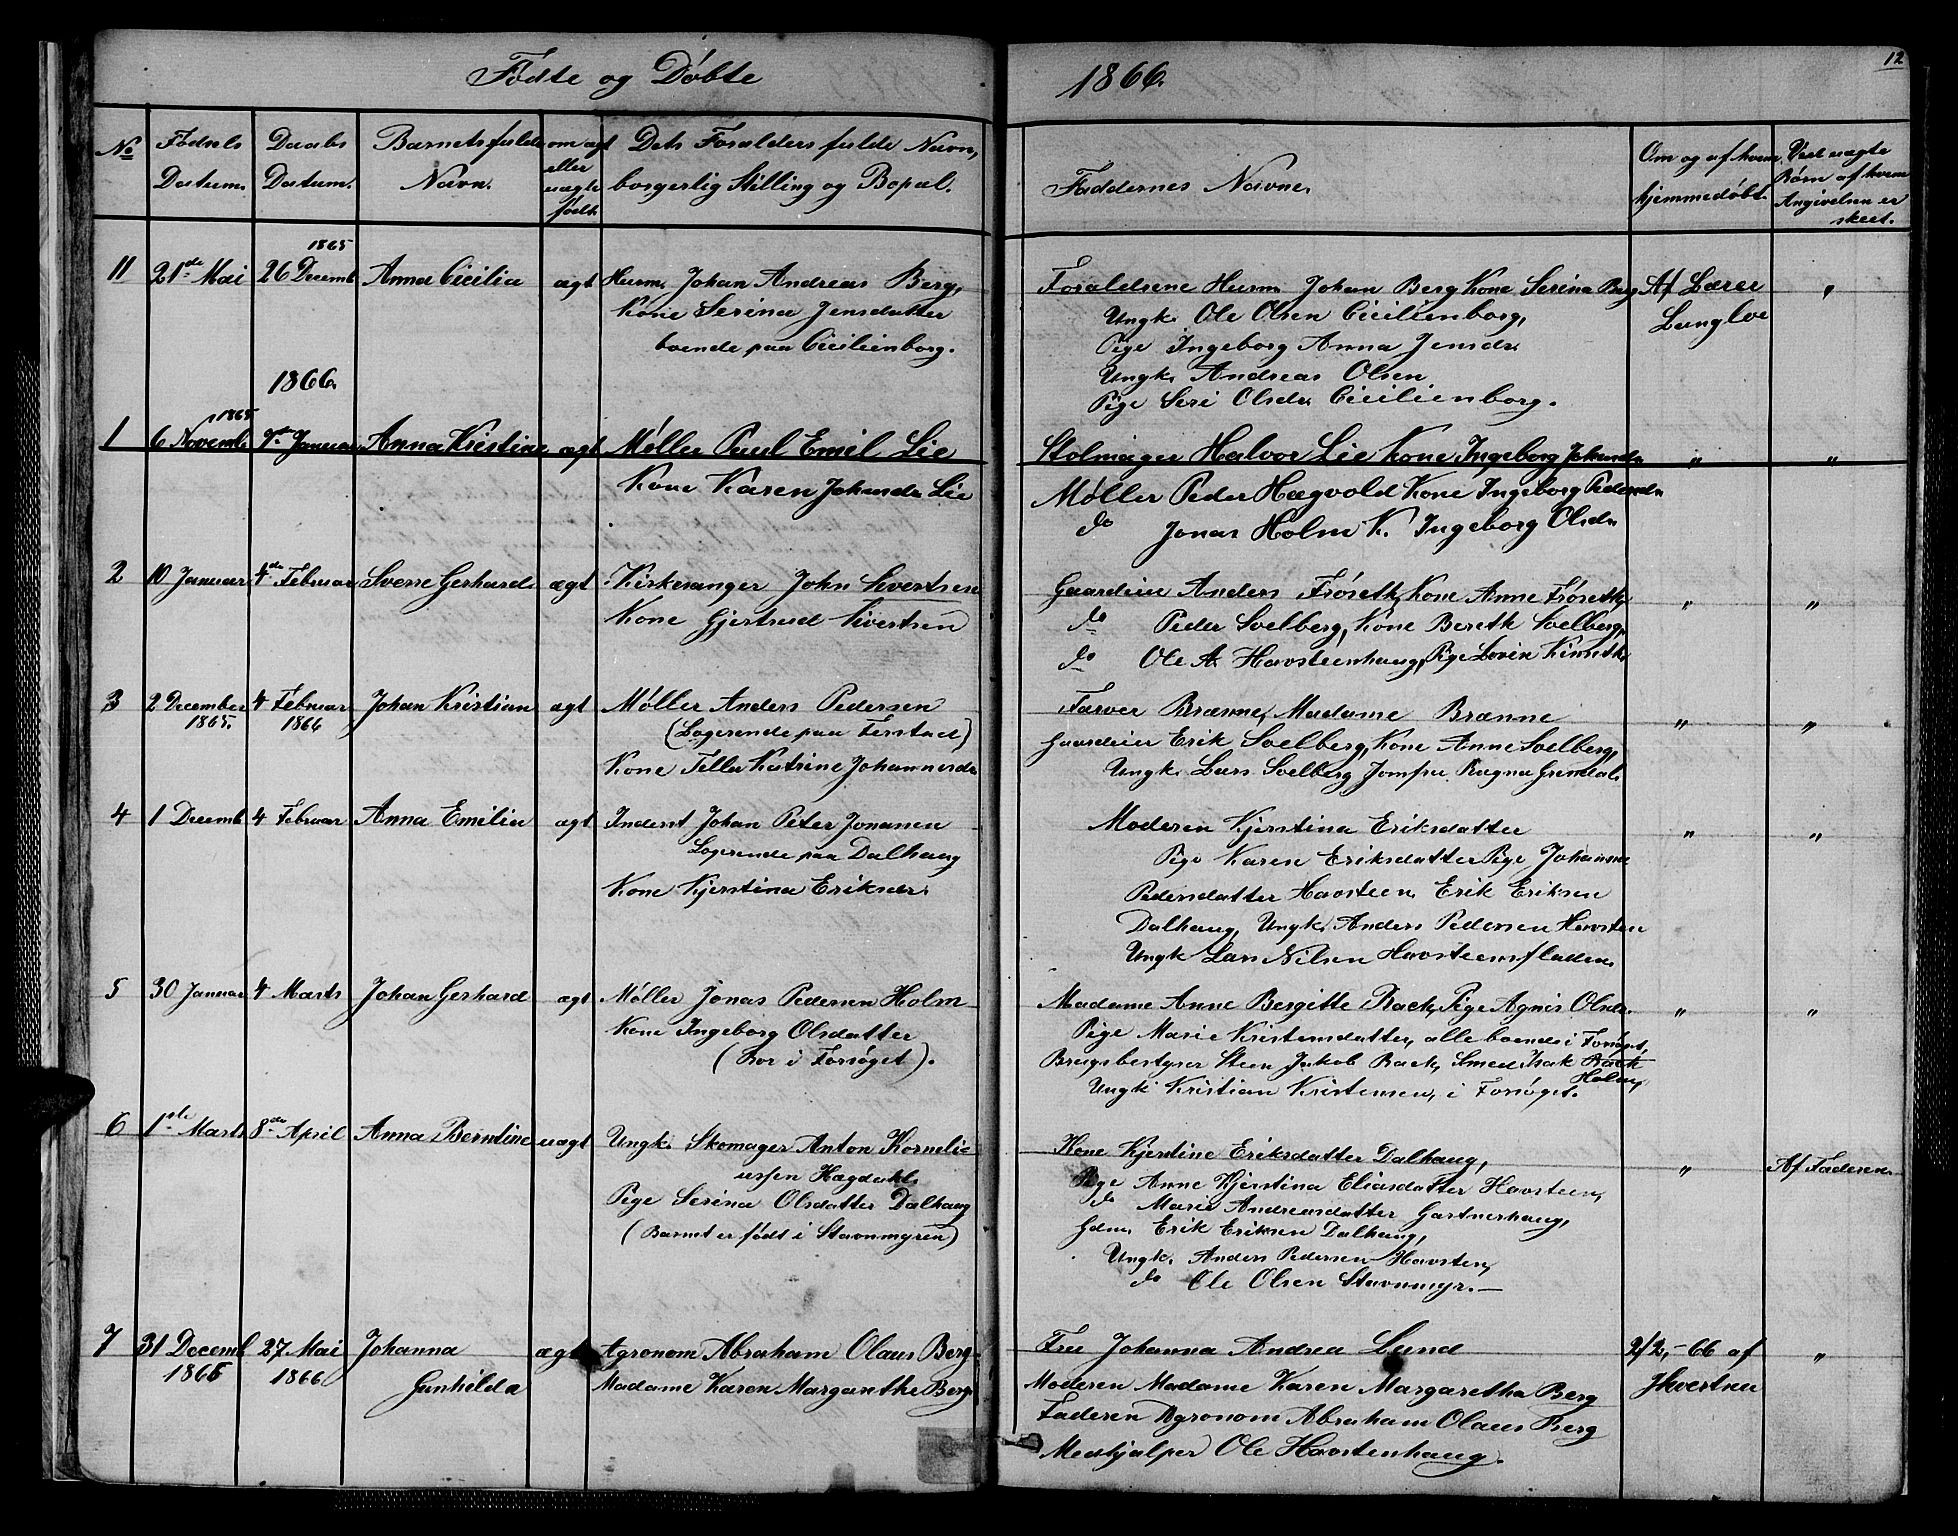 Fødte og Døbte
1866.
12
No
Fødsels Datum.
Daabs Datum.
Barnets fulde Navn.
om ægt eller uægte født.
Dets Forælders fulde Navn, borgerlig Stilling og Bopæl.
Faddernes Navne.
Om og af hvem hjemmedøbt.
Ved uægte Børn af hvem Angivelsen er skeet.
1865
11 21de Mai 26 Decemb Anna Cicilia ægt Husm. Johan Andreas Berg,
Kone Serina Jensdatter
boende paa Cicilienborg.
Forældrene Husm Johan Berg Kone Serina Berg
Ungk. Ole Olsen Cicilienborg,
Pige Ingeborg Anna Jensdr.
Ungk. Andreas Olsen
Pige Seri Olsdr. Cicilienborg.
Af Lærer
Langloe
"
1866.
1865
1 6 Novemb 7de Januar Anna Kristine ægt Møller Paul Emil Lie
Kone Karen Johnsdr Lie
Stolmager Halvor Lie Kone Ingeborg Johnsdr
Møller Peder Hægvold Kone Ingeborg Pedersdr
do Jonas Holm K. Ingeborg Olsdr
" "
2 10 Januar 4de Februar Sverre Gerhard ægt Kirkesanger John Sivertsen
Kone Gjertrud Sivertsen
Gaardeier Anders Frøseth, Kone Anne Frøseth,
do Peder Solberg, Kone Bereth Solberg,
do Ole A. Havsteenhaug, Pige Lovin Kinseth,
" "
3 2 December 4 Februar Johan Kristian ægt Møller Anders Pedersen
1865. 1866
(Logerende paa Ferstad)
Kone Telle Katrine Johannesdr
Farver Brænne, Madame Brænne
Gaardeier Erik Solberg, Kone Anne Solberg,
Ungk. Lars Solberg Jomfru Ragna Grendal.
" "
4 1 Decemb 4 Februar Anna Emilia ægt Inderst Johan Peter Jonasen
Logerende paa Dalhaug
Kone Kjerstina Eriksdr.
Moderen Kjerstina Eriksdatter
Pige Karen Eriksdatter Pige Johanne
Pedersdatter Havsteen, Erik Eriksen
Dalhaug, Ungk. Anders Pedersen Havsten
Ungk Lars Nilsen Havsteensfladen.
" "
5 30 Januar 4 Marts Johan Gerhard ægt Møller Jonas Pedersen Holm
Kone Ingeborg Olsdatter
(Bor i Forsøget).
Madame Anne Bergitte Rack, Pige Agnis Olsdr.
Pige Marie Kristensdatter, alle boende i Forsøget,
Brugsbestyrer Steen Jakob Rack, Smed Isak Rack
Holm,
Ungk Kristian Kristensen, i Forsøget.
" "
6 1ste Marts 8de April Anna Berntine uægt Ungk. Skomager Anton Korneli-
ussen Hægdahl.
Pige Serina Olsdatter Dalhaug
(Barnet er født i Stavnmyren)
Kone Kjerstine Eriksdatter Dalhaug,
Pige Anne Kjerstina Eliasdatter Havsteen,
do Marie Andreasdatter Gartnerhaug,
Gdm. Erik Eriksen Dalhaug,
Ungk. Anders Pedersen Havsten,
do Ole Olsen Stavnmyr.—
" Af Faderen
7 31 Decemb 27 Mai Johanna ægt Agronom Abraham Olaus Berg
1865 1866. Gunhilda Madame Karen Margarethe Berg
Fru Johanna Andrea Lund
Moderen Madame Karen Margaretha Berg
Faderen Agronom Abraham Olaus Berg
Medhjælper Ole Havstenhaug.
2/2,-66 af
"